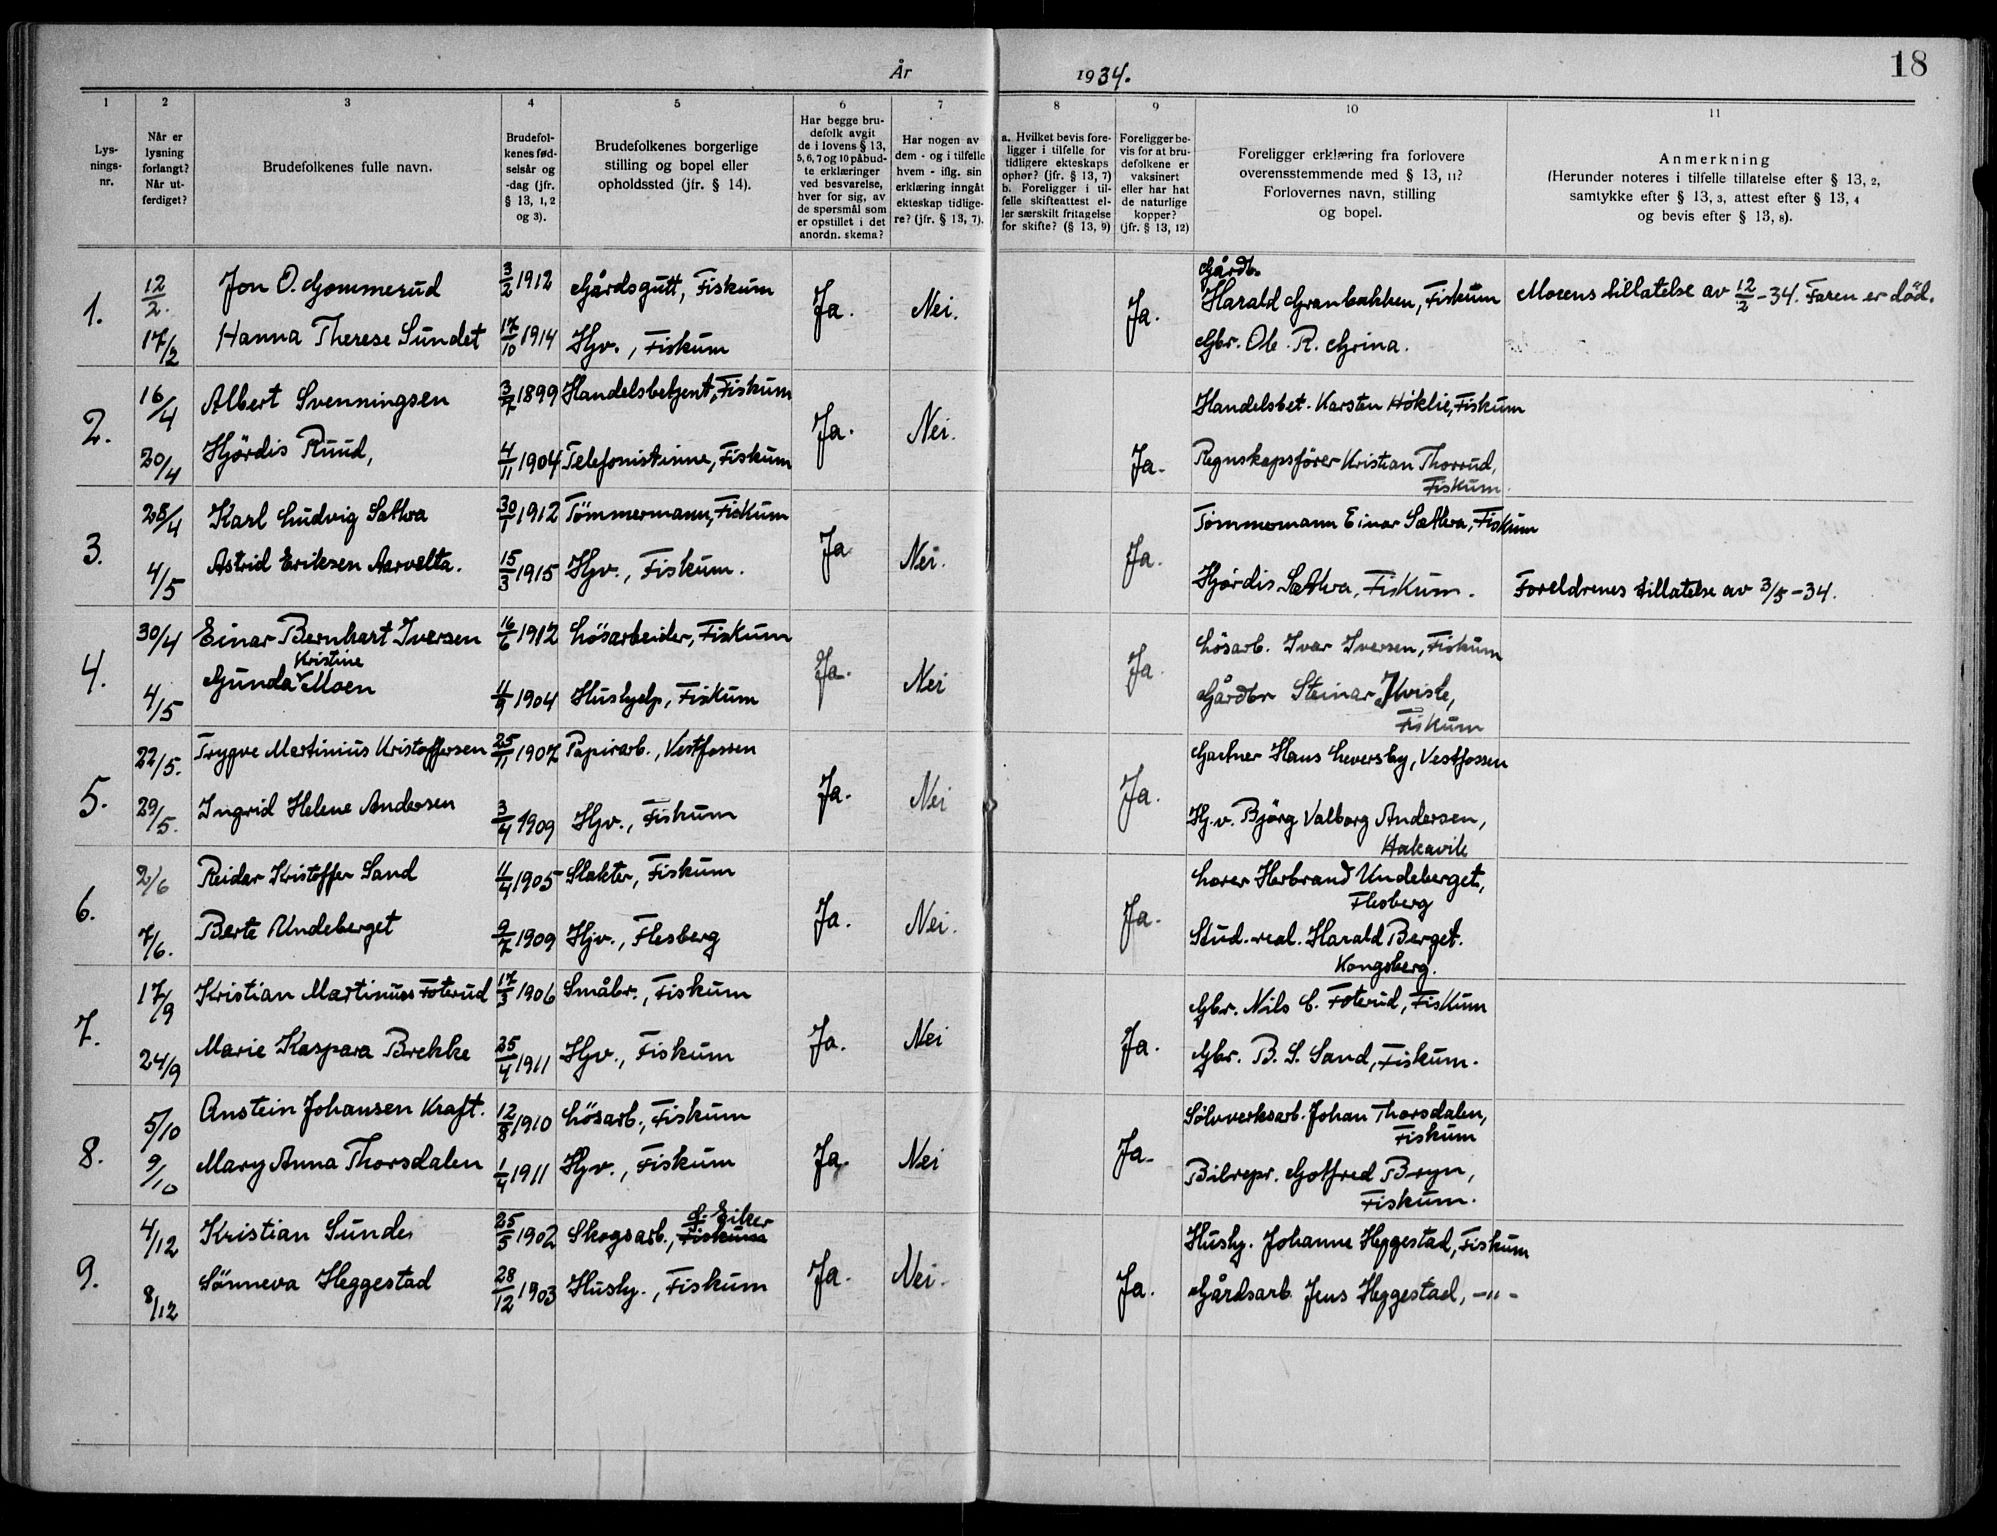 År 1934.
18
1 2 3 4 5 6 7 8 9 10 11
Lys-
nings-
nr.
Når er
lysning
forlangt?
Når ut-
ferdiget?
Brudefolkenes fulle navn.
Brudefol-
kenes fød-
selsår og
-dag (jfr.
§ 13, 1, 2
og 3).
Brudefolkenes borgerlige
stilling og bopel eller
opholdssted (jfr. § 14).
Har begge bru-
defolk avgit
de i lovens § 13,
5, 6, 7 og 10 påbud-
te erklæringer
ved besvarelse,
hver for sig, av
de spørsmål som
er opstillet i det
anordn. skema?
Har nogen av
dem - og i tilfelle
hvem - iflg. sin
erklæring inngått
ekteskap tidlige-
re? (jfr. § 13, 7).
a. Hvilket bevis fore-
ligger i tilfelle for
tidligere ekteskaps
ophør? (jfr. § 13, 7)
b. Foreligger i til-
felle skifteattest el-
ler særskilt fritagelse
for skifte? (§ 13, 9)
Foreligger be-
vis for at bru-
defolkene er
vaksinert
eller har hat
de naturlige
kopper?
(jfr. § 13, 12)
Foreligger erklæring fra forlovere
overensstemmende med § 13, 11?
Forlovernes navn, stilling
og bopel.
Anmerkning
(Herunder noteres i tilfelle tillatelse efter § 13, 2,
samtykke efter § 13, 3, attest efter § 13, 4
og bevis efter § 13, 8).
1. 12/2. Jon O. Gommerud 3/2 1912 Gårdsgutt, Fiskum Ja. Nei. Ja. Gårdbr.
Harald Granbakken, Fiskum Morens tillatelse av 12/2-34. Faren er død.
17/2 Hanna Therese Sundet 17/10 1914 Hjv., Fiskum Gbr. Ole R. Grina.
2. 16/4 Albert Svenningsen 3/7 1899 Handelsbetjent, Fiskum Ja. Nei. Handelsbet. Karsten Høklie, Fiskum
20/4 Hjørdis Ruud, 4/11 1904 Telefonistinne, Fiskum Ja. Regnskapsfører Kristian Thorrud,
Fiskum.
3. 28/4 Karl Ludvig Sæthra 30/1 1912 Tømmermann, Fiskum Ja Nei. Ja. Tømmermann Einar Sætra, Fiskum
4/5 Astrid Eriksen Aarvelta. 15/3 1915 Hjv., Fiskum. Hjørdis Sæthra, Fiskum. Foreldrenes tillatelse av 3/5-34.
4. 30/4 Einar Bernhart Iversen 16/6 1912 Løsarbeider, Fiskum Ja. Nei Ja. Løsarb. Ivar Iversen, Fiskum
Kristine
4/5 Gunda Moen 4/9 1904 Hushjelp, Fiskum Gårdbr Steinar Kviste,
Fiskum
5. 22/5. Trygve Martinius Kristoffersen 25/11 1907 Papirarb., Vestfossen Ja. Nei Ja. Gartner Hans Leversby, Vestfossen
29/5. Ingrid Helene Andersen 3/4 1909 Hjv., Fiskum Hj.v. Bjørg Valborg Andersen,
Hakavik
6. 2/6 Reidar Kristoffer Sand 4/4 1905 Slakter, Fiskum Ja. Nei. Ja. Lærer Herbrand Undeberget,
Flesberg
7/6. Berte Undeberget 9/7 1909 Hjv., Flesberg Stud. real. Harald Berget.
Kongsberg.
7. 17/9 Kristian Martinus Foterud 17/3 1906 Småbr., Fiskum Ja. Nei Ja. Gbr. Nils C. Foterud, Fiskum
24/9 Marie Kaspara Brekke 25/4 1911 Hjv., Fiskum Gbr. B. S. Sand, Fiskum.
8. 5/10 Anstein Johansen Kraft. 12/8 1910 Løsarb., Fiskum Ja. Nei Ja. Sølvverksarb. Johan Thorsdalen,
Fiskum
9/10 Mary Anna Thorsdalen 1/4 1911 Hjv., Fiskum Bilrepr. Gotfred Bryn,
Fiskum.
9. 4/12 Kristian Sunde 25/5 1902 Skogsarb., Fiskum Ø. Eiker Ja. Nei. Ja. Hushj. Johanne Heggestad, Fiskum
8/12 Sønneva Heggestad 28/12 1903 Hushj., Fiskum Gårdsarb. Jens Heggestad, -"-